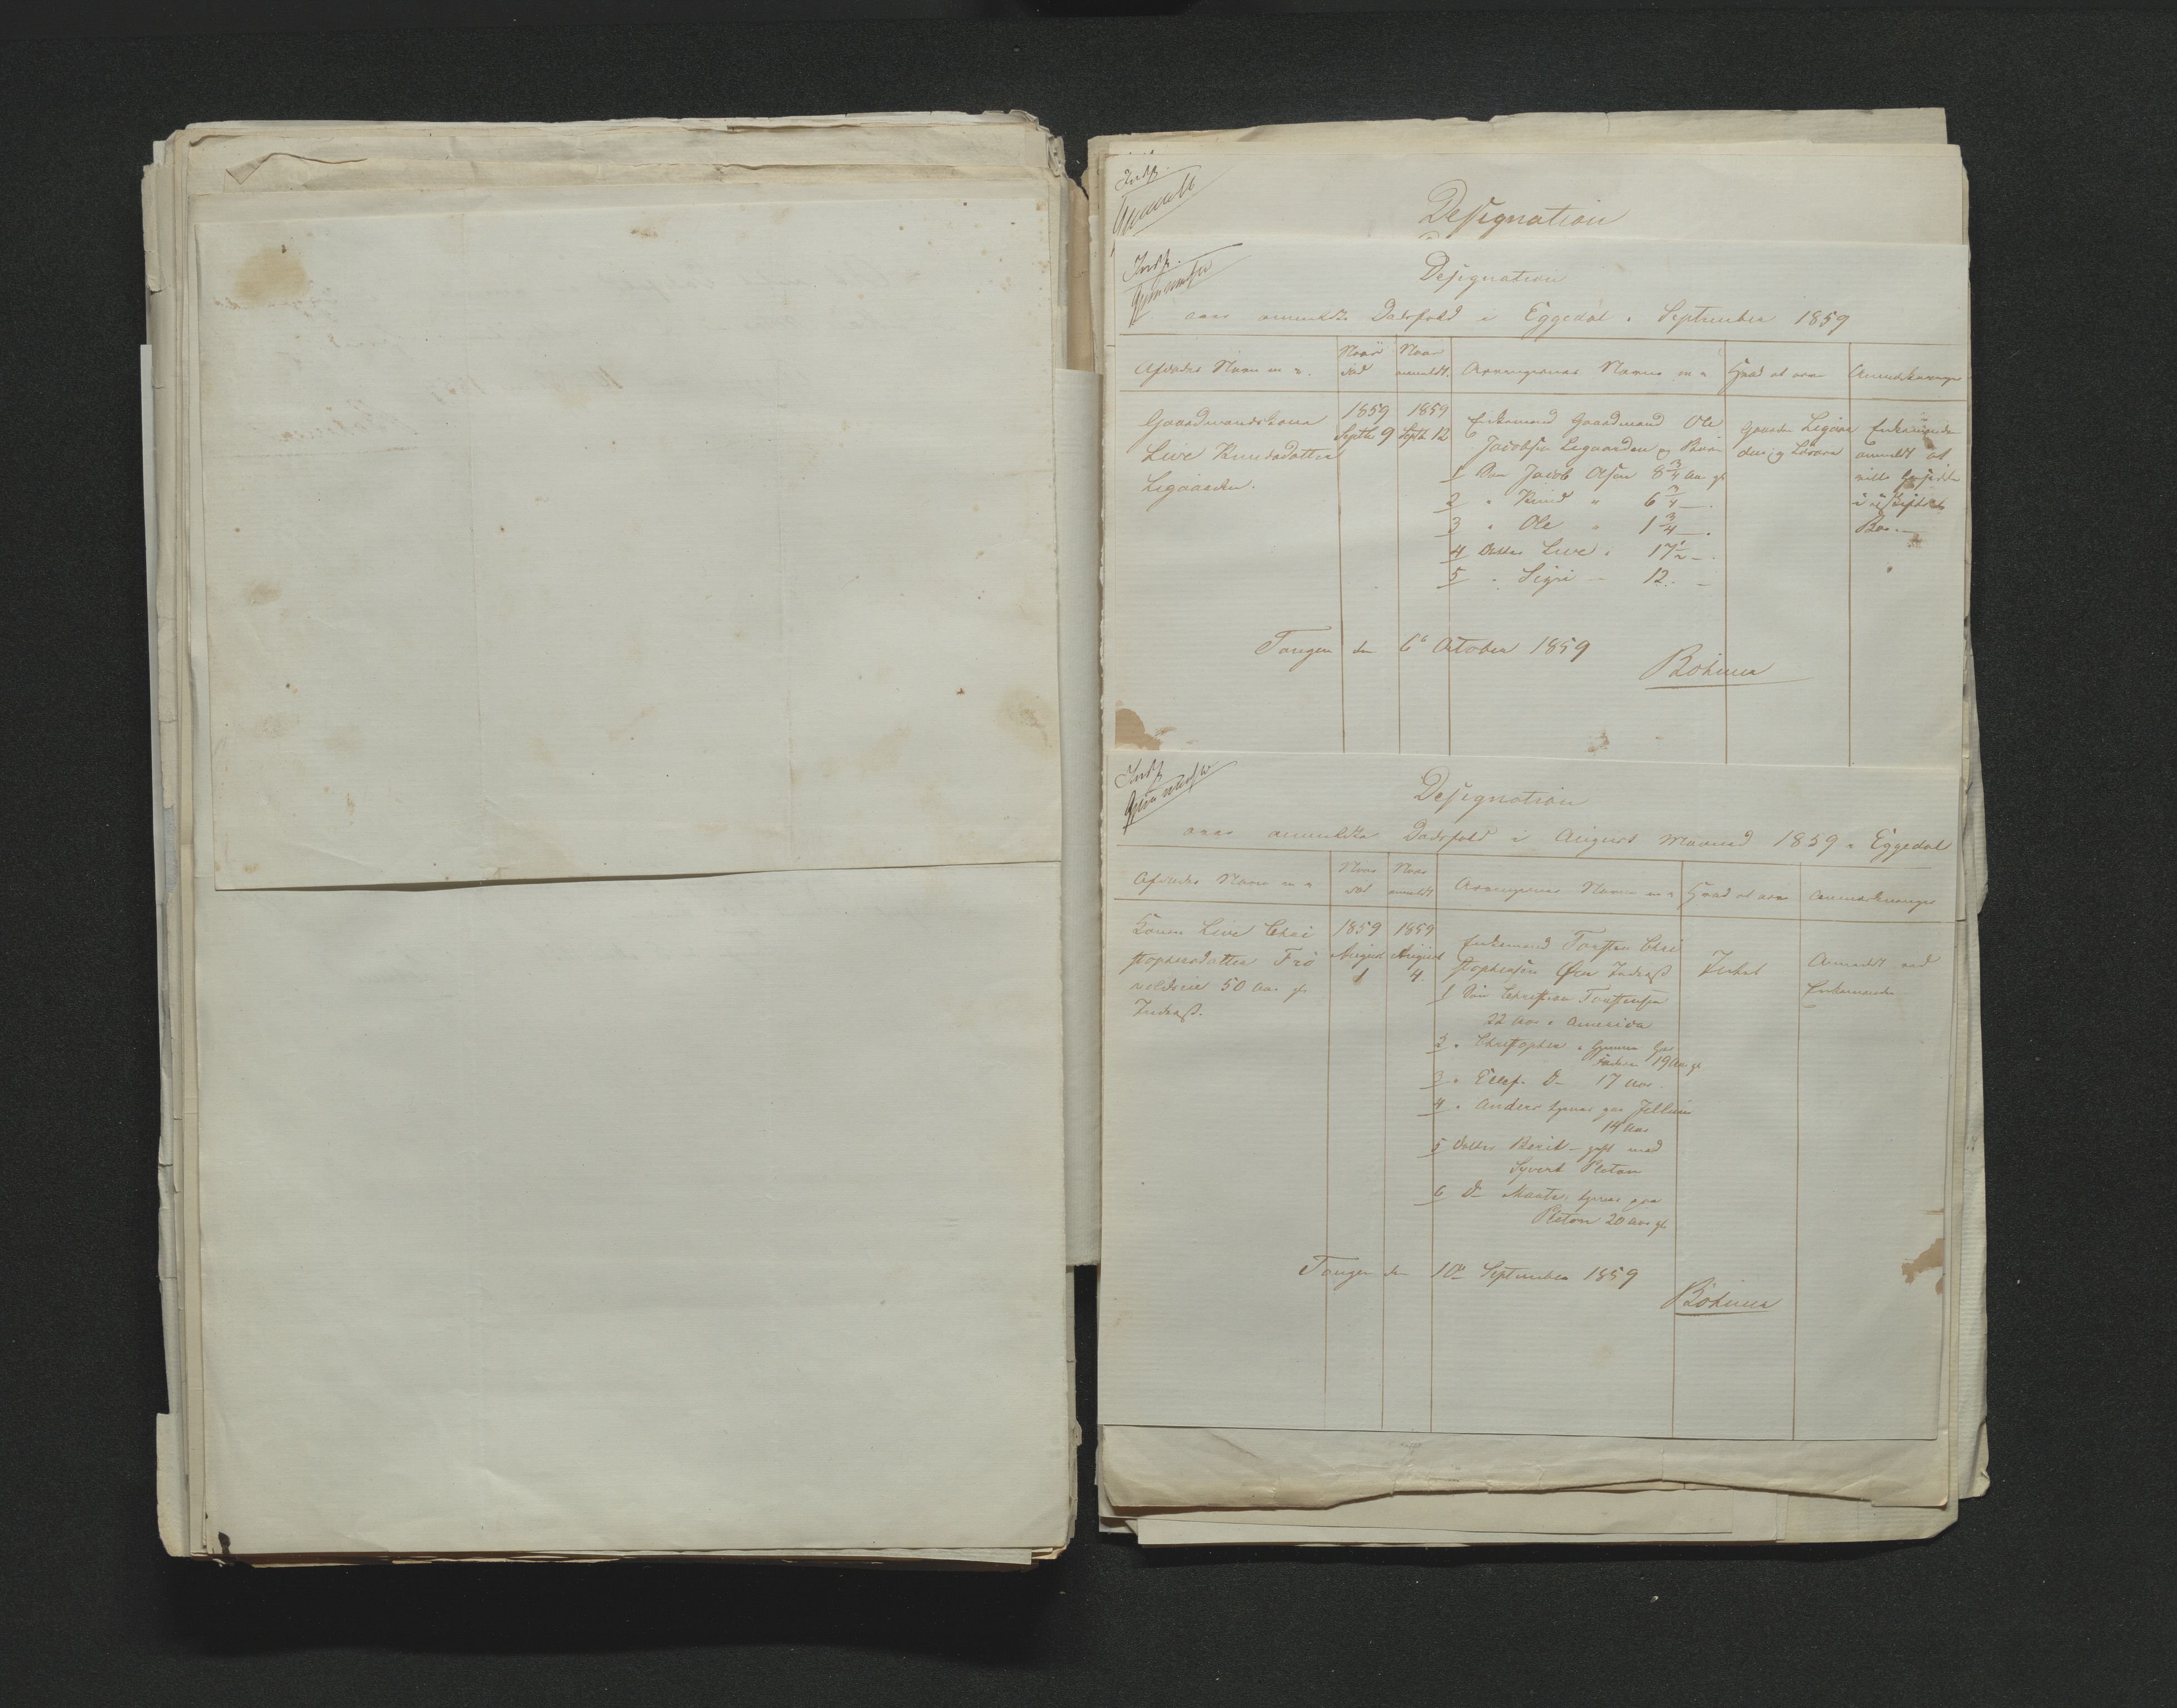 Designation
Designation
over anmeldte Dødsfald i Eggedal i September 1859
Afdødes Navn m v.
Naar død
Naar anmeldt.
Arvingernes Navne m v
Hvad at arve
Anmærkninger
Gaardmandskone
Live Knudsdatter
Ligaarden.
1859
Septbr 9
1859
Septb 12
Enkemand Gaardmand Ole
Jacobsen Ligaarden og Børn
1 Søn Jacob Olsen 8 3/4 Aar gl
2 " Knud " 6 3/4 — .
3 " Ole " 1 3/4 — .
4 Datter Live " 17 1/2 — .
5 " Sigri — 12 . —
Gaarden Ligaar
den og Løsøre
Enkemanden
anmeldt at
ville hensidde
i uskiftet
Boe. —
Tangen den 6 October 1859
Böhmer
Designation
over anmeldte Dødsfald i August Maaned 1859 i Eggedal
Afdødes Navn m v
Naar død
Naar anmeldt
Arvingernes Navne m v
Hvad at arve
Anmærkninger
Konen Live Chri
stophersdatter Frö
voldseie 50 Aar gl
Inderst.
1859
August
1
1859
August
4.
Enkemand Torsten Chri
stophersen Inderst
1 Søn Christian Torstensen
22 Aar i America
2 " Christopher " 19 Aar gl
3 " Ellef d— 17 Aar
4 " Anders tjener paa
14 Aar
5 Datter Berit — gift med
Syvert Pleton
6 d— Marte, tjener paa
Pleton 20 Aar gl
Intet
Anmeldt ved
Enkemanden
Tangen den 10de September 1859
Böhmer